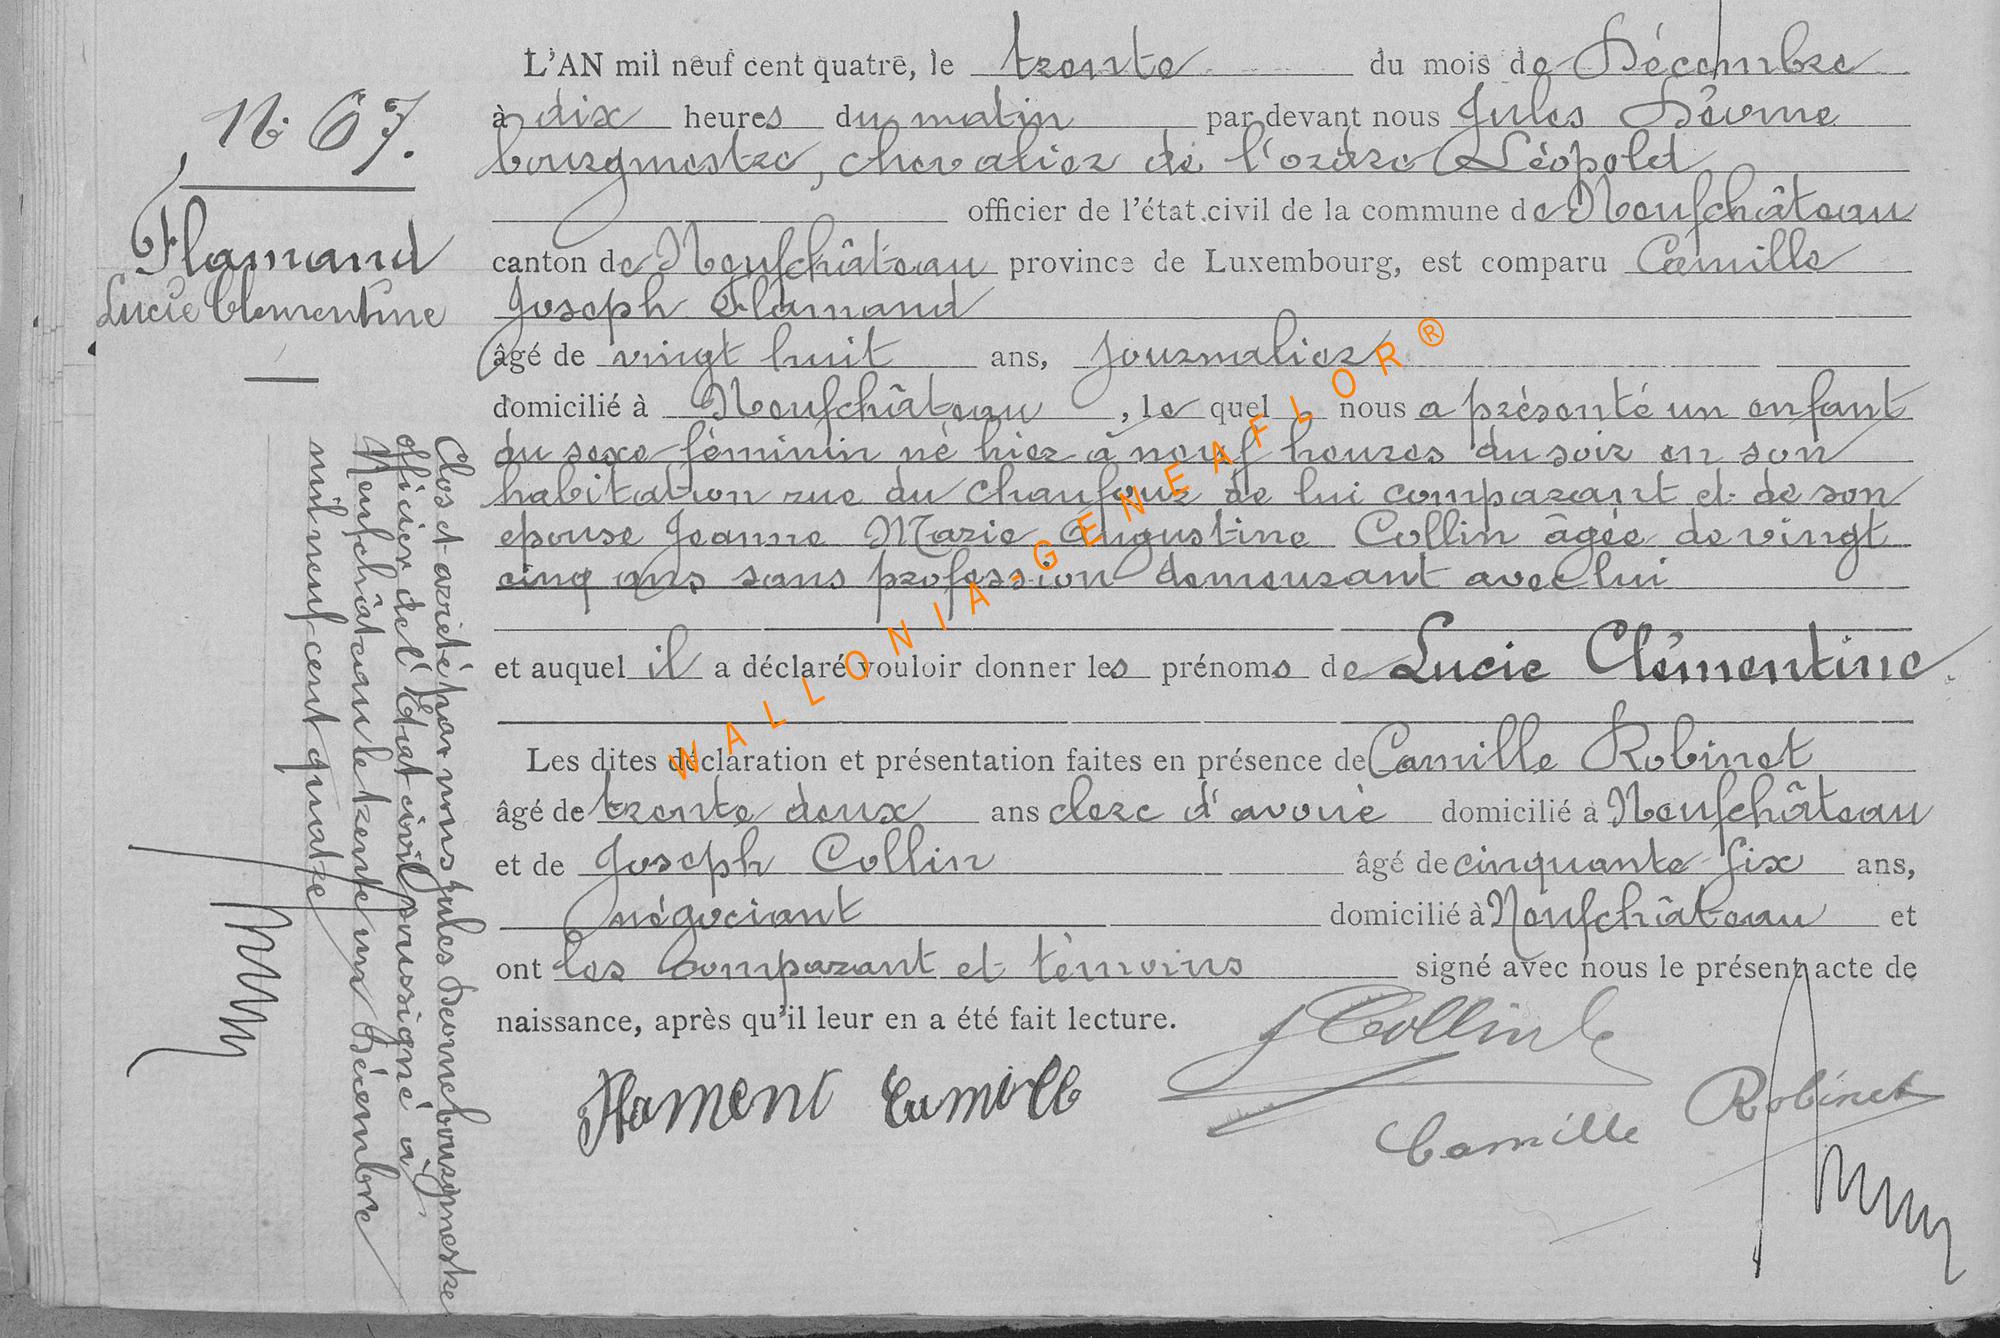 N° 67.
Flamand
Lucie Clementine
L'AN mil neuf cent quatre, le trente du mois de Décembre
à dix heures du matin par devant nous Jules Devorne
bourgmestre, chevalier de l'ordre Léopold
officier de l'état civil de la commune de Neufchâteau
canton de Neufchâteau province de Luxembourg, est comparu Camille
Joseph Flamand
âgé de vingt huit ans, journalier
domicilié à Neufchâteau, le quel nous a présenté un enfant
du sexe féminin né hier à neuf heures du soir en son
habitation rue du Chaufour de lui comparant et de son
epouse Jeanne Marie Augustine Collin âgée de vingt
cinq ans sans profession demeurant avec lui
et auquel il a déclaré vouloir donner les prénoms de Lucie Clémentine.
Les dites déclaration et présentation faites en présence de Camille Robinet
âgé de trente deux ans clerc d'avoué domicilié à Neufchâteau
et de Joseph Collin âgé de cinquante six ans,
négociant domicilié à Neufchâteau et
ont les comparant et témoins signé avec nous le présent acte de
naissance, après qu'il leur en a été fait lecture.
J Collin
Flament Camille
Camille Robinet
Clos et arrêté par nous Jules Devorne bourgmestre
officier de l'Etat civil soussigné à
Neufchâteau le trente un Décembre
mil neuf cent quatre
WALLONIA-GENEAFLOR®